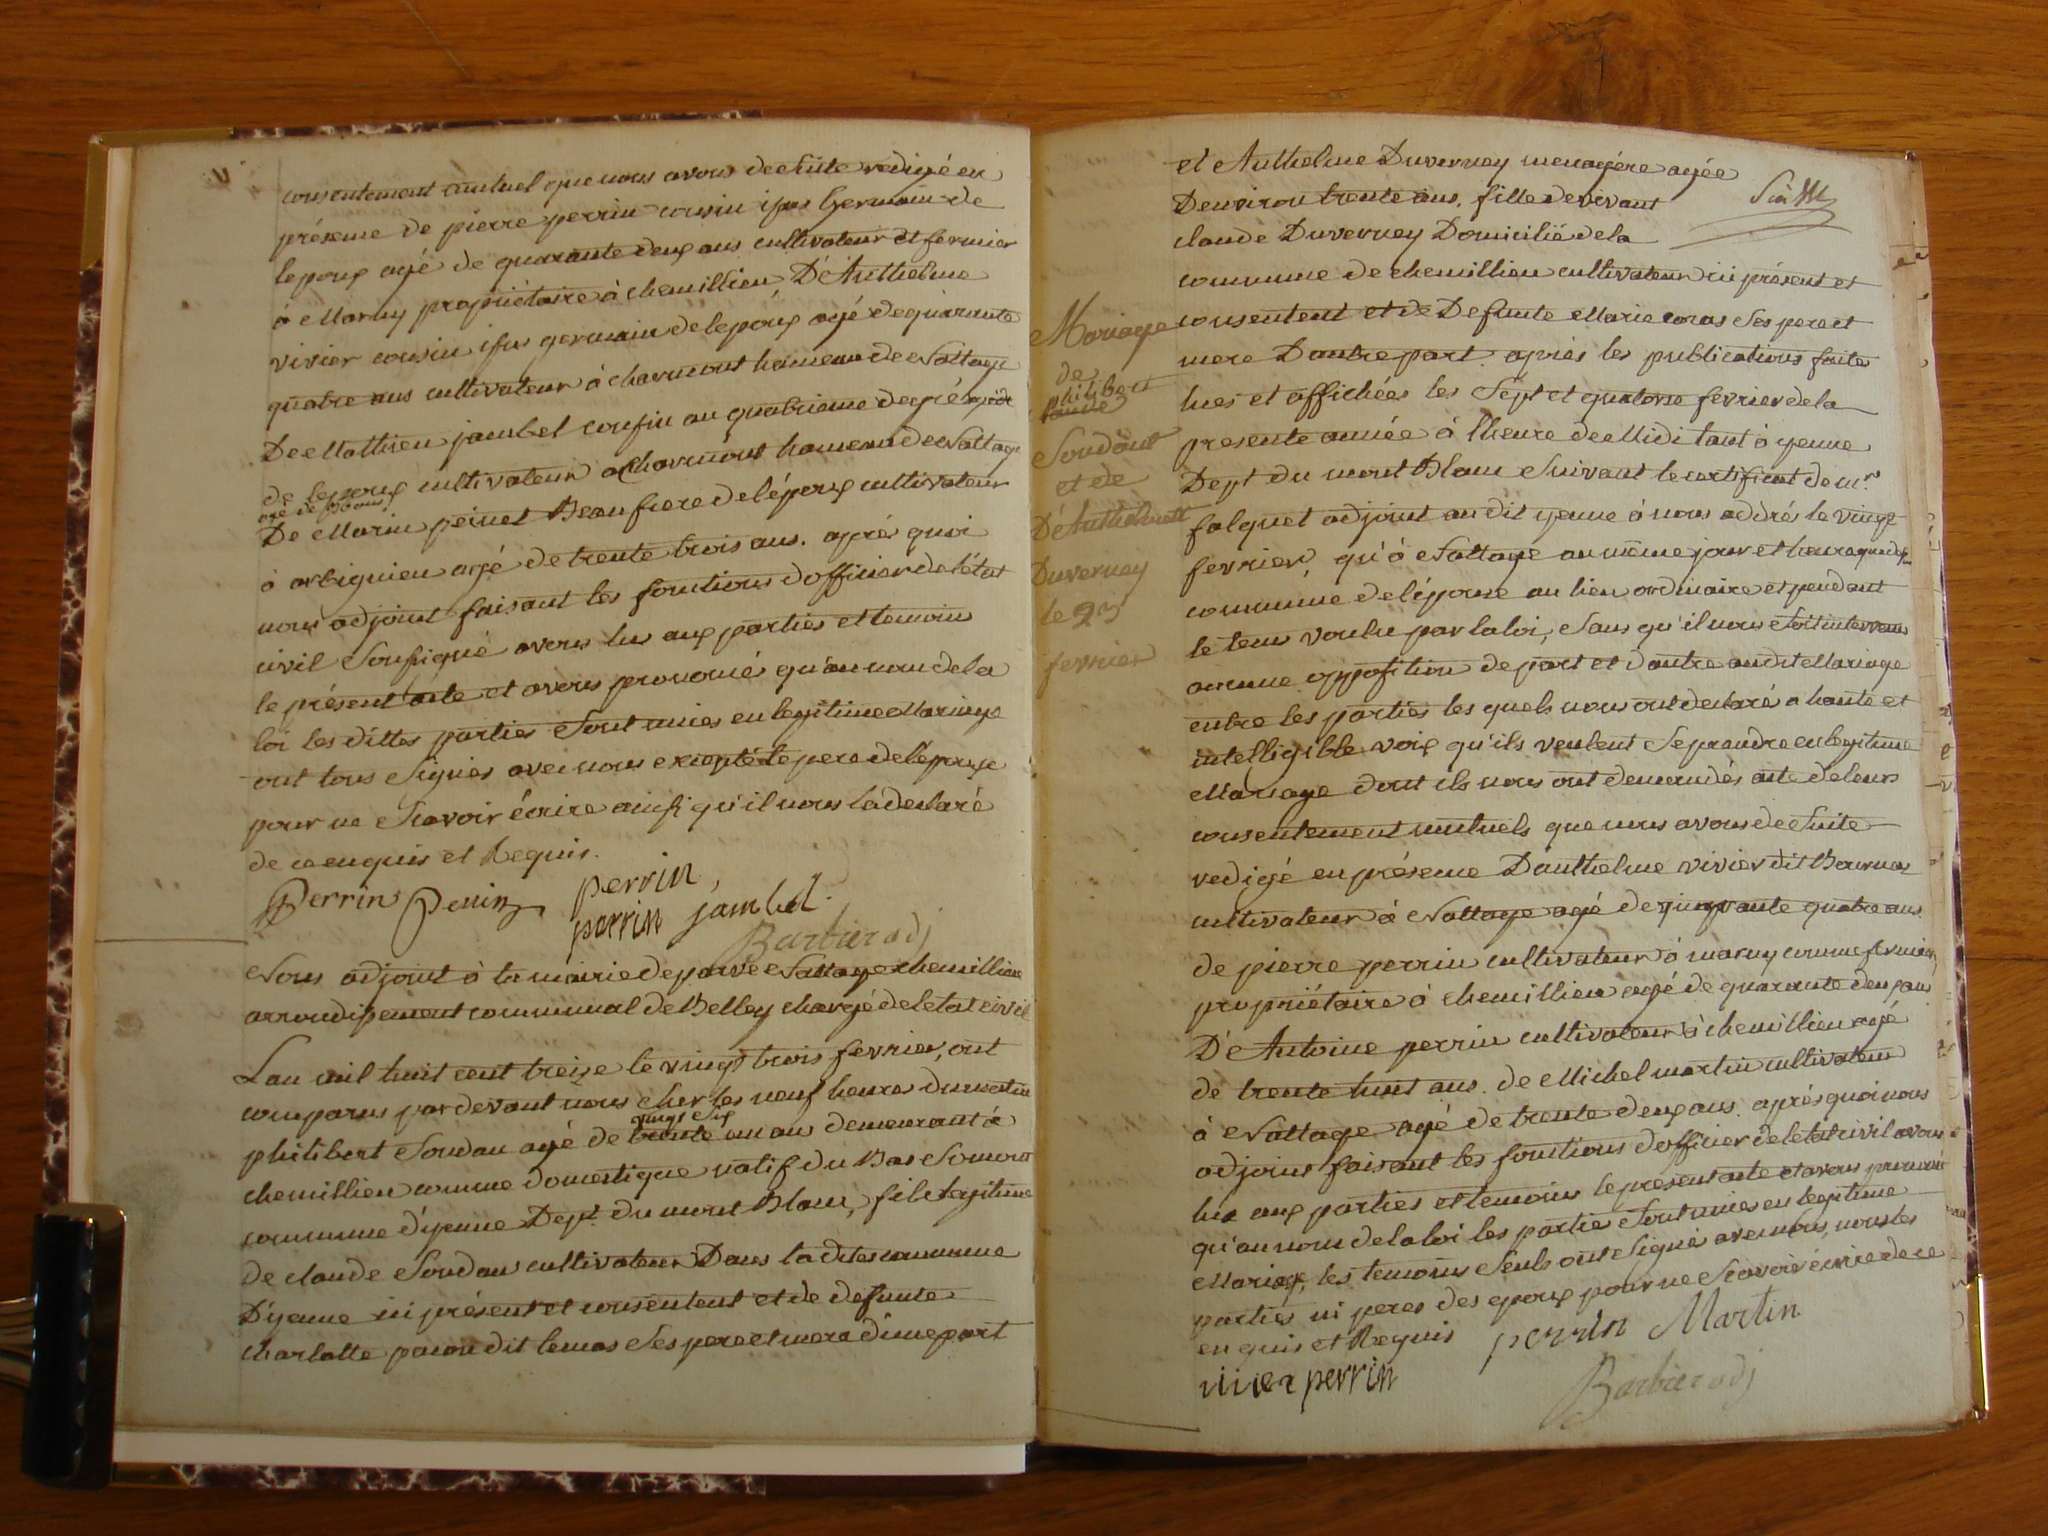 consentement mutuel que nous avons de suite redigé en
présence de pierre perrin cousin issus Germain de
lepoux agé de quarante deux ans cultivateur et fermier
a Marny propriétaire à chemillieu D'Anthelme
vivier cousin issus germain de lepoux agé de quarante
quatre ans cultivateur à charmont hameau de Nattage
De Mathieu jambet cousin au quatrieme degré
de lepoux cultivateur a Charmont hameau de Nattage
De Marin peinet Beau frere de l'époux cultivateur
à arbignieu agé de trente trois ans. après quoi
nous adjoint faisant les fonctions d'officier de l'état
civil Soussigné avons lu aux parties et temoins
le présent acte et avons prononcé qu'au nom de la
loi les dittes parties Sont unies en legitime Mariage
ont tous Signés avec nous excepté le pere de l'épouse
pour ne Scavoir écrire ainsi qu'il nous la declaré
de ce enquis et Requis.
Perrin Perrin perrin
perrin jambet
Barbier adj
Nous adjoint à la mairie de parve Nattage chemillieu
arrondissement communal de Belley chargé de letat civil
Lan mil huit cent treize le vingt trois fevrier, ont
comparus par devant nous cher les neuf heures du matin
vingt six
philibert Soudan agé de trente un ans demeurant à
chemillieu comme domestique natif du Bas Somont
commune d'yenne Dept. du mont Blanc, fils legitime
de claude Soudan cultivateur Dans la dite commune
D'yenne ici présent et consentent et de defunte
charlotte pacon dit lemas Ses pere et mere d'une part
et Anthelme Duverney menagére agée
Denviron trente ans, fille de vivant
claude Duverney Domicilié de la
commune de chemillieu cultivateur ici présent et
consentent et de Defunte Marie coras Ses pere et
mere Dautre part. après les publications faites
lues et affichées les Sept et quatorze fevrier de la
presente année à l'heure de Midi tant à yenne
Dept du mont Blanc Suivant le certificat de mr.
falquet adjoint au dit yenne à nous addrés le vingt
fevrier, qu'à Nattage au même jour et heure que
commune de l'épouse au lieu ordinaire et pendant
le tems voulu par la loi, Sans qu'il nous Soit intervenu
aucune opposition de part et dautre au dit Mariage
entre les parties les quels nous ont declaré a haute et
intelligible voix qu'ils veulent Se prendre en legitime
Mariage dont ils nous ont demandés acte de leurs
consentement mutuels que nous avons de Suite
redigé en présence Danthelme vivier dit Bournas
cultivateur à Nattage agé de quarante quatre ans.
de pierre perrin cultivateur à marny comme fermier,
propriétaire à chemillieu agé de quarante deux ans
D'Antoine perrin cultivateur à chemillieu agé
de trente huit ans. de Michel martin cultivateur
à Nattage agé de trente deux ans. après quoi nous
adjoint faisant les fonctions d'officier de letat civil avons
lu aux parties et temoins le present acte et avons prononcé
qu'au nom de la loi les parties Sont unies en legitime
Mariage, les temoins Seuls ont Signé avec nous, non les
parties ni peres des epoux pour ne Scavoir écrire de ce
enquis et Requis perrin Martin
vivier perrin
Barbier adj
Mariage
de
philibert
Soudant
et de
D'Anthelmette
Duverney
le 23
fevrier